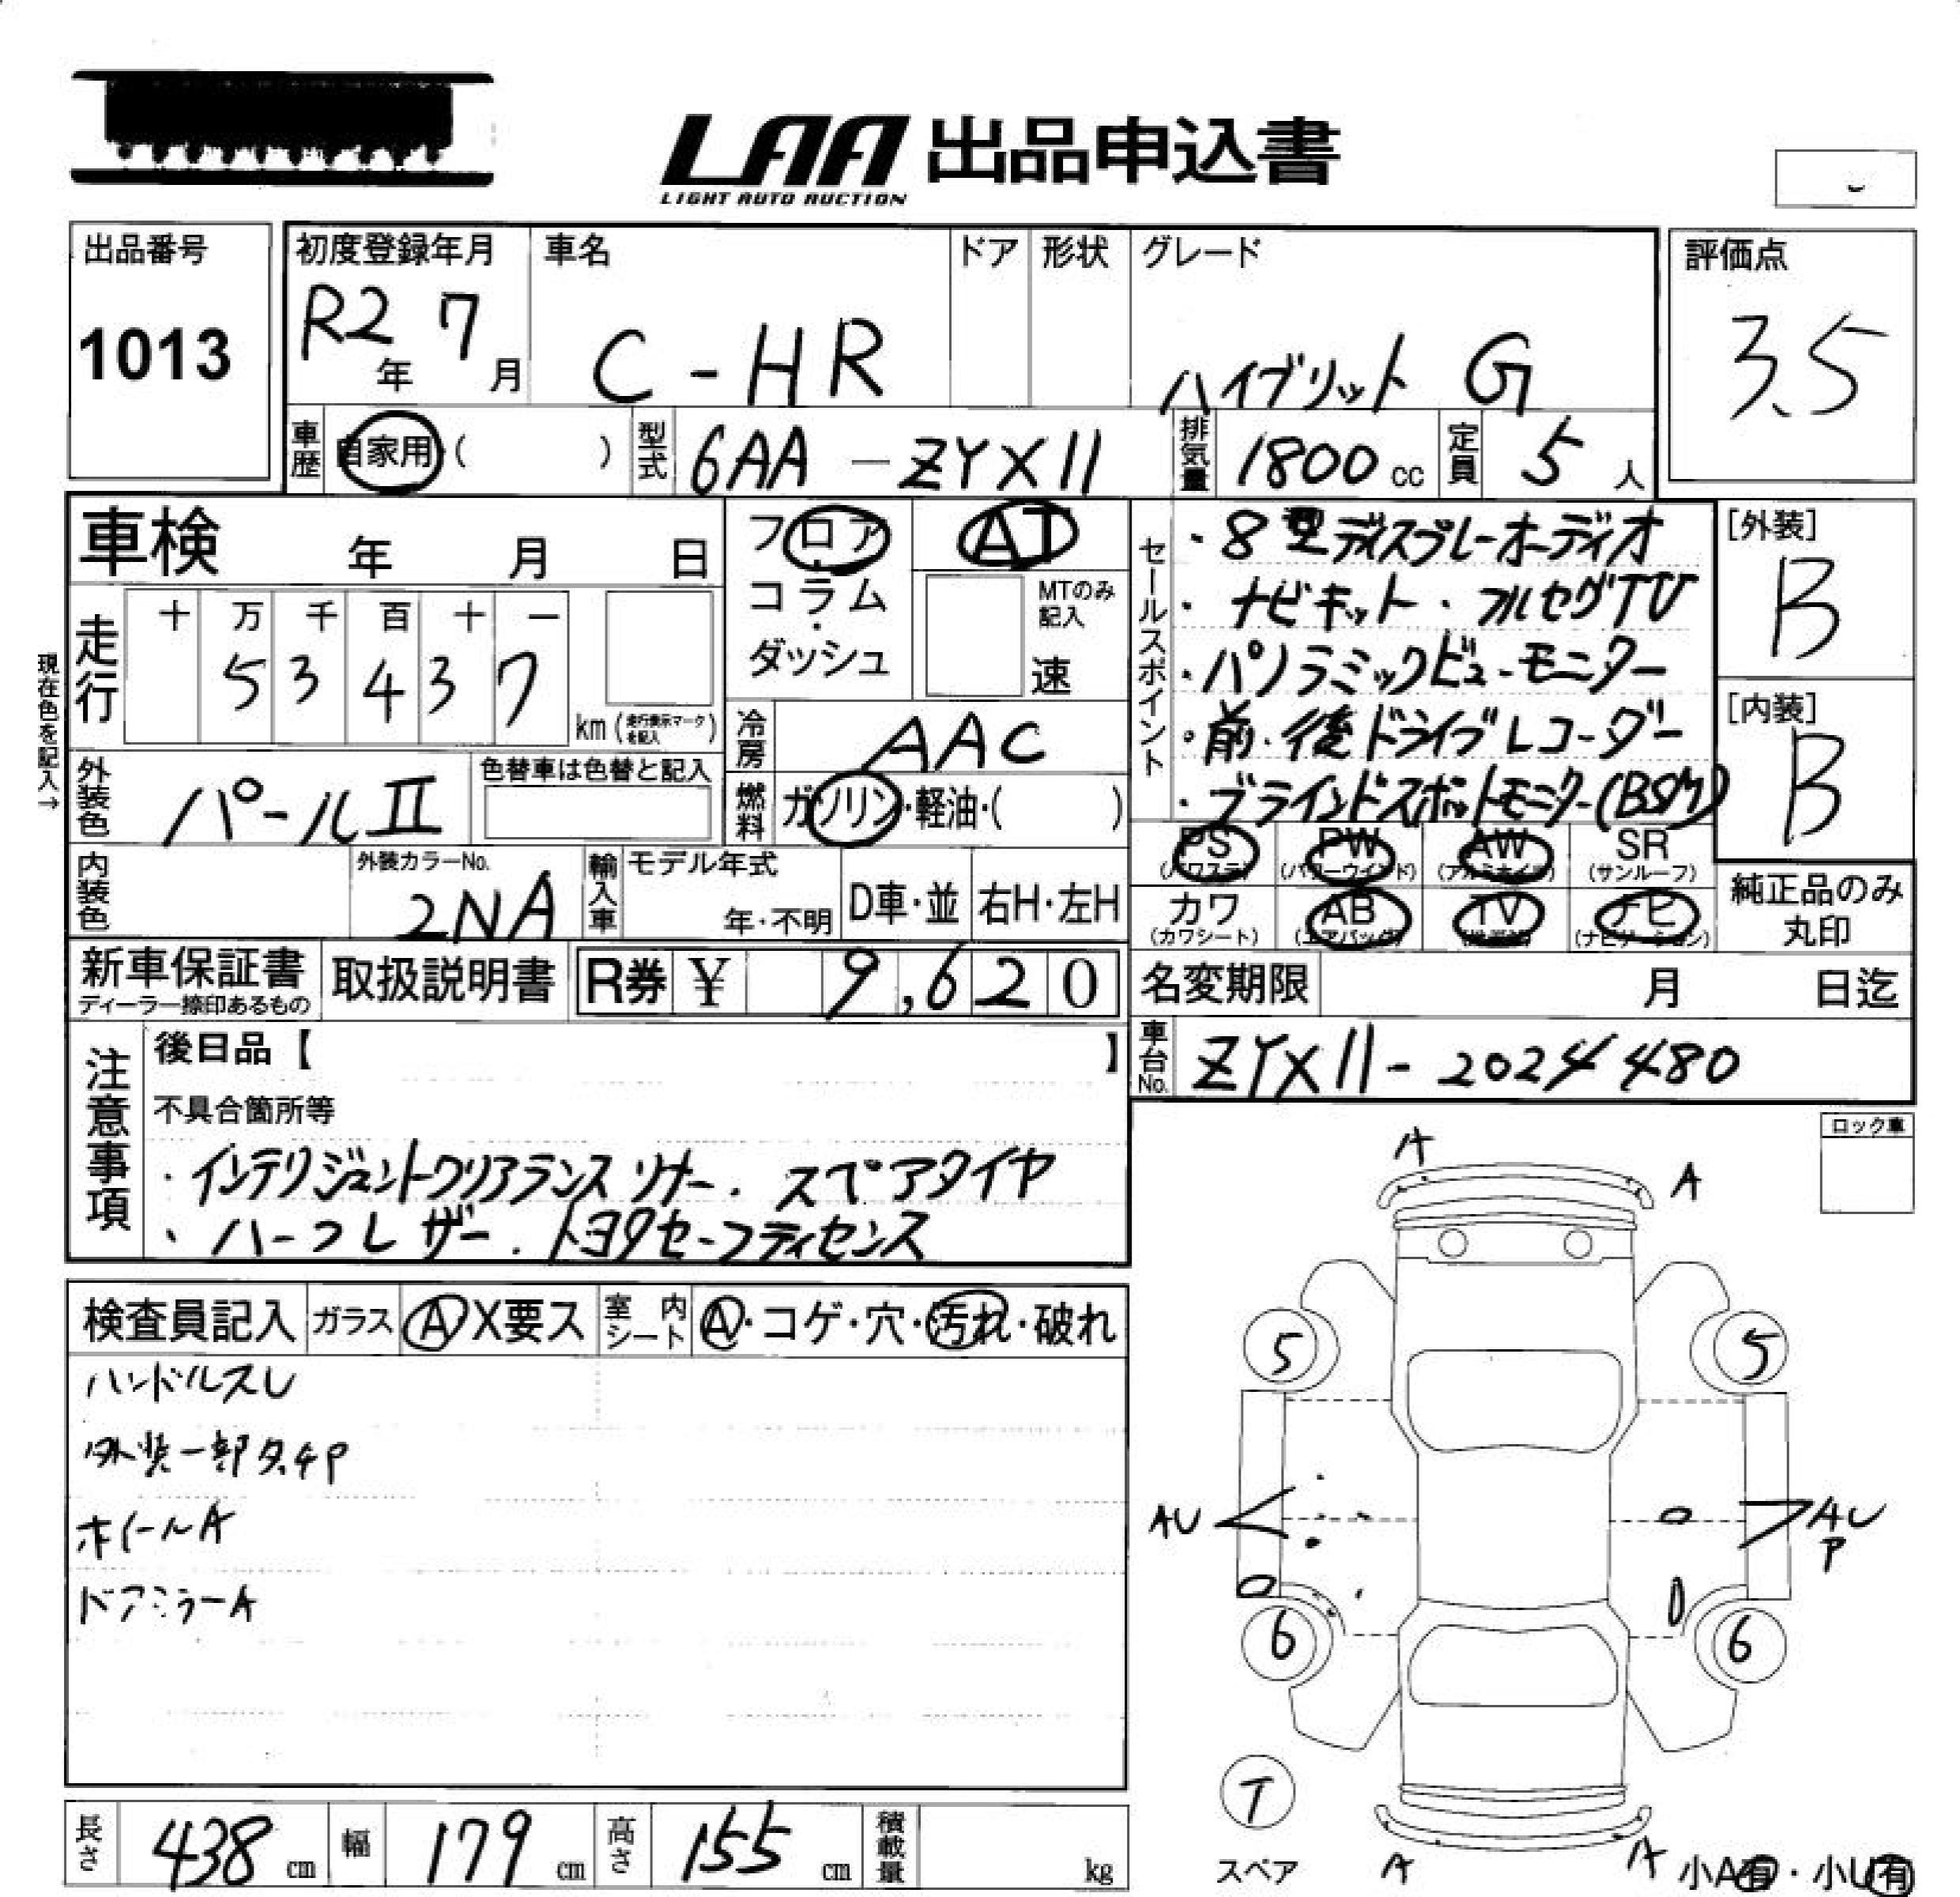 LAA 出品申込書
LIGHT AUTO AUCTION
出品番号
1013
初度登録年月
R2年 7月
車名
C-HR
ドア
形状
グレード
ハイブリット G
評価点
3.5
車歴
自家用・( )
型式
6AA-ZYX11
排気量
1800 cc
定員
5 人
車検 年 月 日
フロア
・
コラム
・
ダッシュ
AT
MTのみ記入
速
セールスポイント
・8型ディスプレーオーディオ
・ナビキット・フルセグTV
・パノラミックビューモニター
・前・後ドライブレコーダー
・ブラインドスポットモニター(BSM)
[外装]
B
[内装]
B
現在色を記入→
走行
十 万 千 百 十 一
5 3 4 3 7
km (走行表示マークを記入)
冷房
AAC
外装色
パールⅡ
色替車は色替と記入
燃料
ガソリン・軽油・( )
内装色
外装カラーNo.
2NA
輸入車
モデル年式
年・不明
D車・並
右H・左H
PS
(パワステ)
PW
(パワーウインド)
AW
(アルミホイル)
SR
(サンルーフ)
カワ
(カワシート)
AB
(エアバッグ)
TV
ナビ
(ナビゲーション)
純正品のみ
丸印
新車保証書
ディーラー捺印あるもの
取扱説明書
R券 ¥ 9,620
名変期限 月 日迄
車台No.
ZYX11-2024480
注意事項
後日品【 】
不具合箇所等
・インテリジェントクリアランスソナー・スペアタイヤ
・ハーフレザー・トヨタセーフティセンス
ロック車
検査員記入
ガラス
A X要ス
室内シート
A・コゲ・穴・汚れ・破れ
ハンドルスレ
外装一部タッチP
ホイールA
ドアミラーA
A
A
5
5
AU
AU
P
6
6
T
スペア
A
A
小A有・小U有
長さ
438 cm
幅
179 cm
高さ
155 cm
積載量
kg